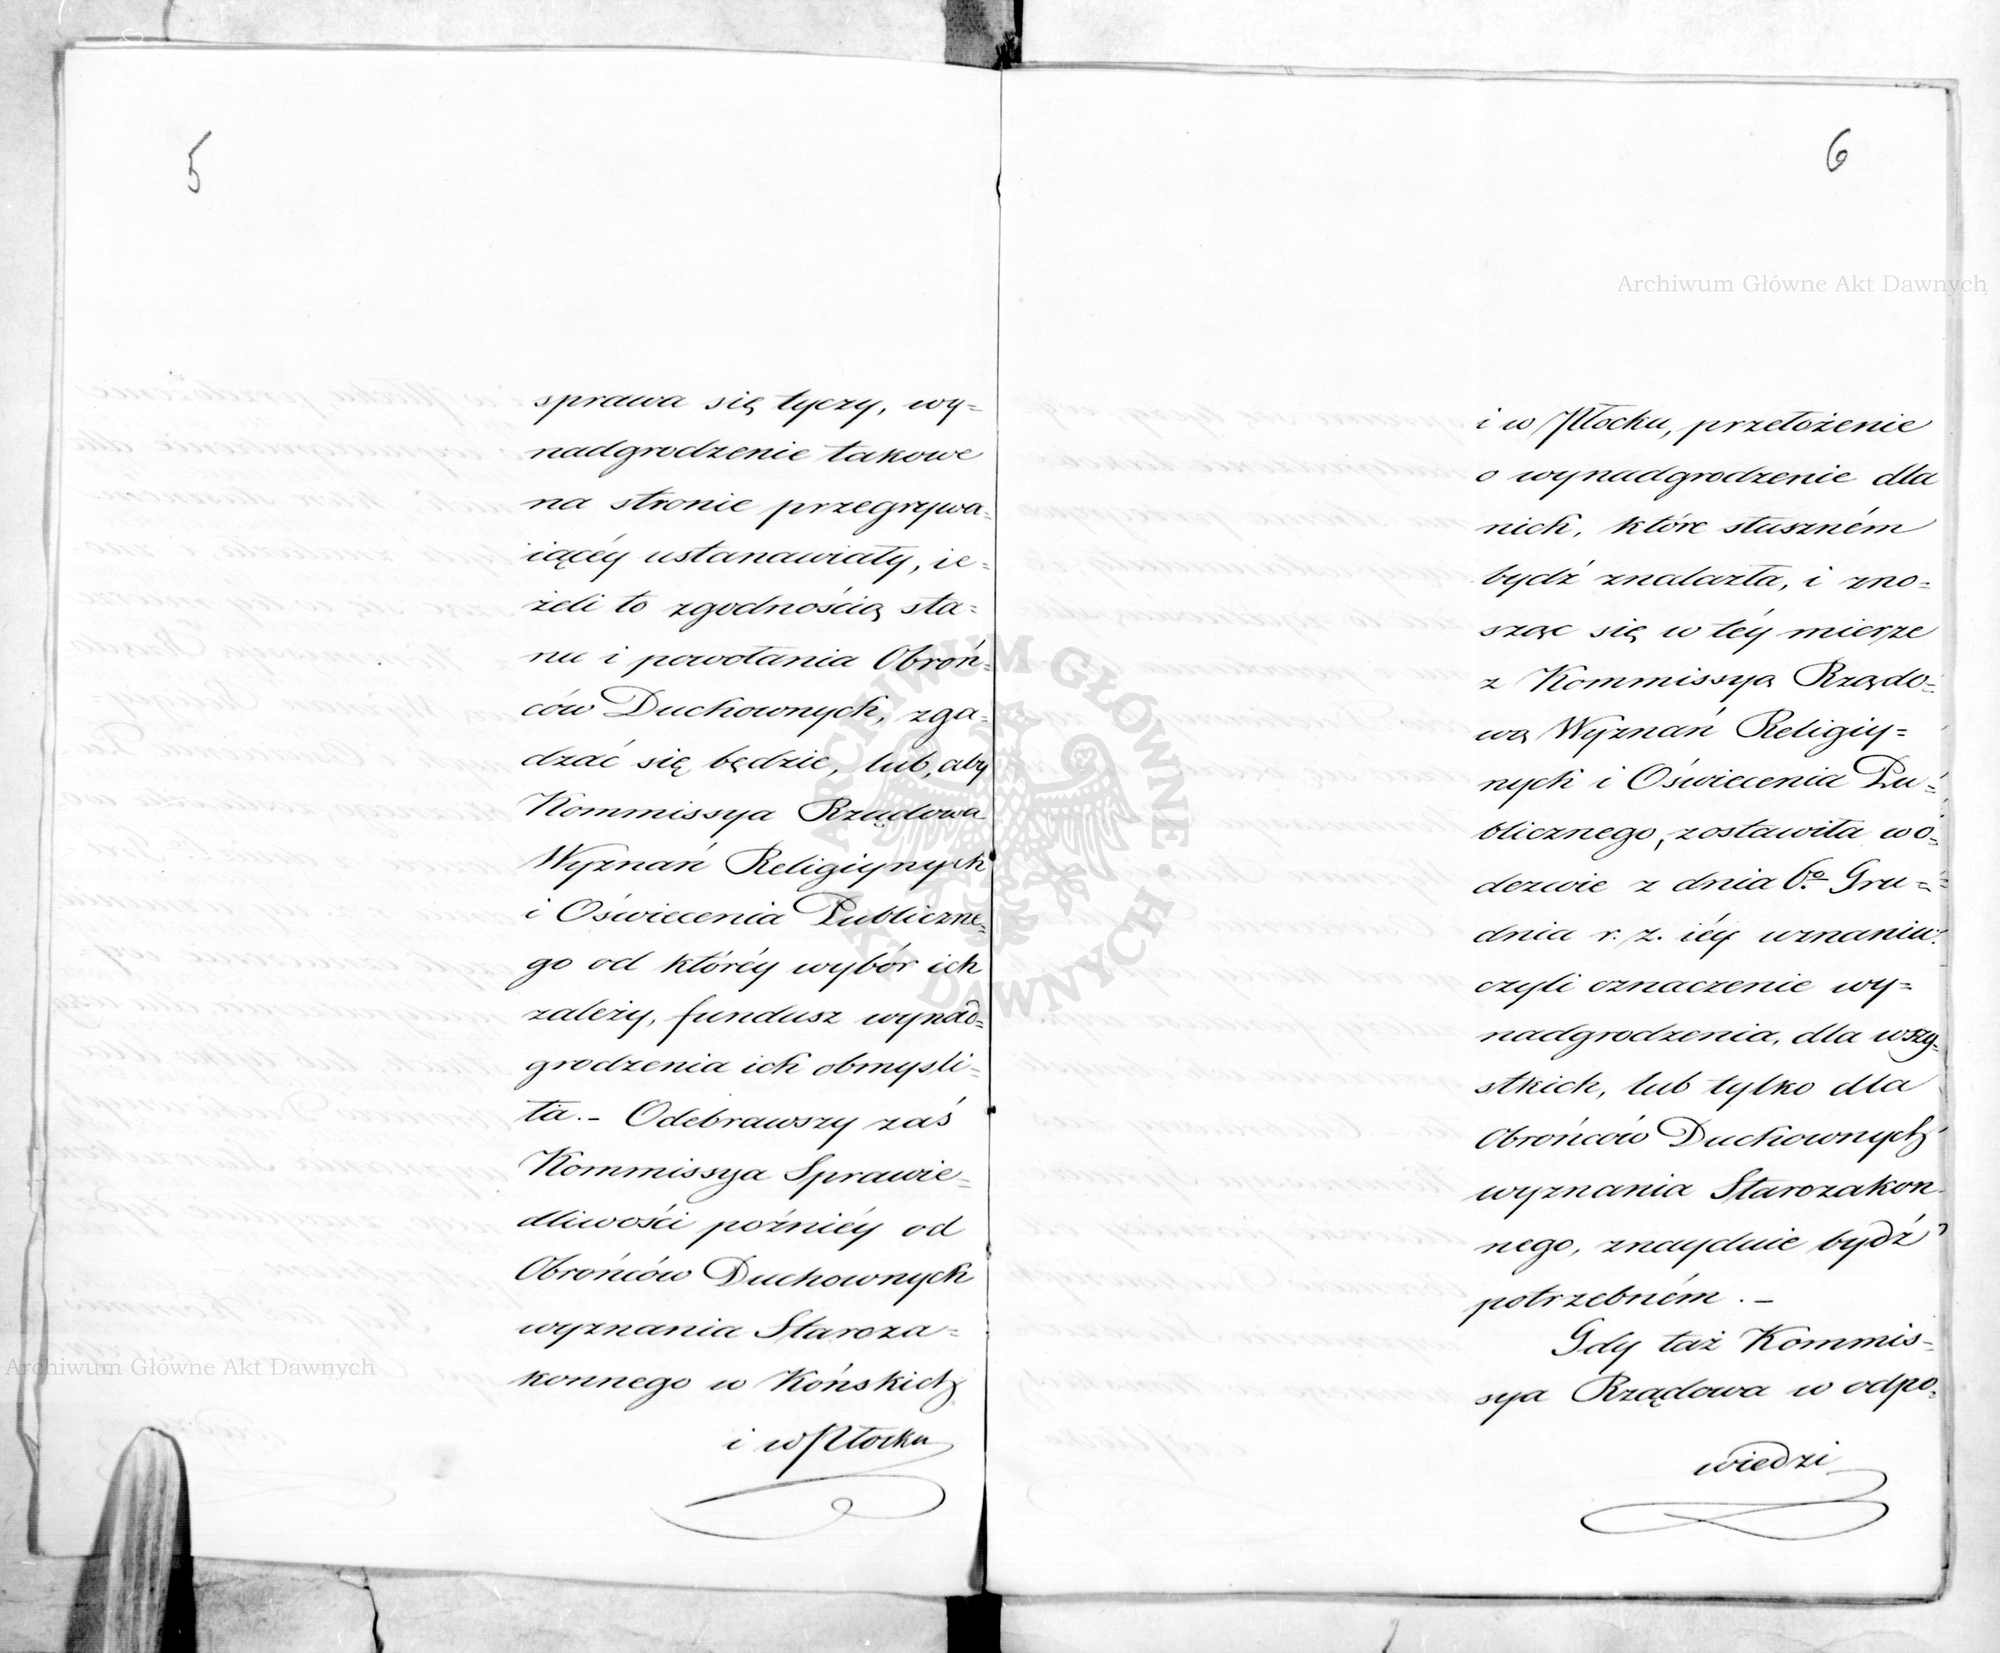 5
sprawa się tyczy, wy=
nadgrodzenie takowe
na stronie przegrywa=
iącéy ustanawiały, ie=
żeli to zgodnością sta=
nu i powołania Obroń=
ców Duchownych, zga=
dzać się będzie, lub, aby
Kommissya Rządowa
Wyznań Religiynych
i Oświecenia Publiczne=
go od któréy wybór ich
zależy, fundusz wynad=
grodzenia ich obmyśli=
ła.— Odebrawszy zaś
Kommissya Sprawie=
dliwości poźniéy od
Obrońców Duchownych
wyznania Staroza=
konnego w Końskich
i w Płocku
6
i w Płocku, przełożenie
o wynadgrodzenie dla
nich, które słuszném
bydź znalazła, i zno=
sząc się w téy mierze
z Kommissyą Rządo=
wą Wyznań Religiy=
nych i Oświecenia Pu=
blicznego, zostawiła w o=
dezwie z dnia 6.º Gru=
dnia r. z. iéy uznaniu
czyli oznaczenie wy=
nadgrodzenia, dla wszy=
stkich, lub tylko dla
Obrońców Duchownych
wyznania Starozakon
nego, znayduie bydź
potrzebném.—
Gdy taż Kommis=
sya Rządowa w odpo=
wiedzi
Archiwum Główne Akt Dawnych
Archiwum Główne Akt Dawnych
ARCHIWUM GŁÓWNE AKT DAWNYCH